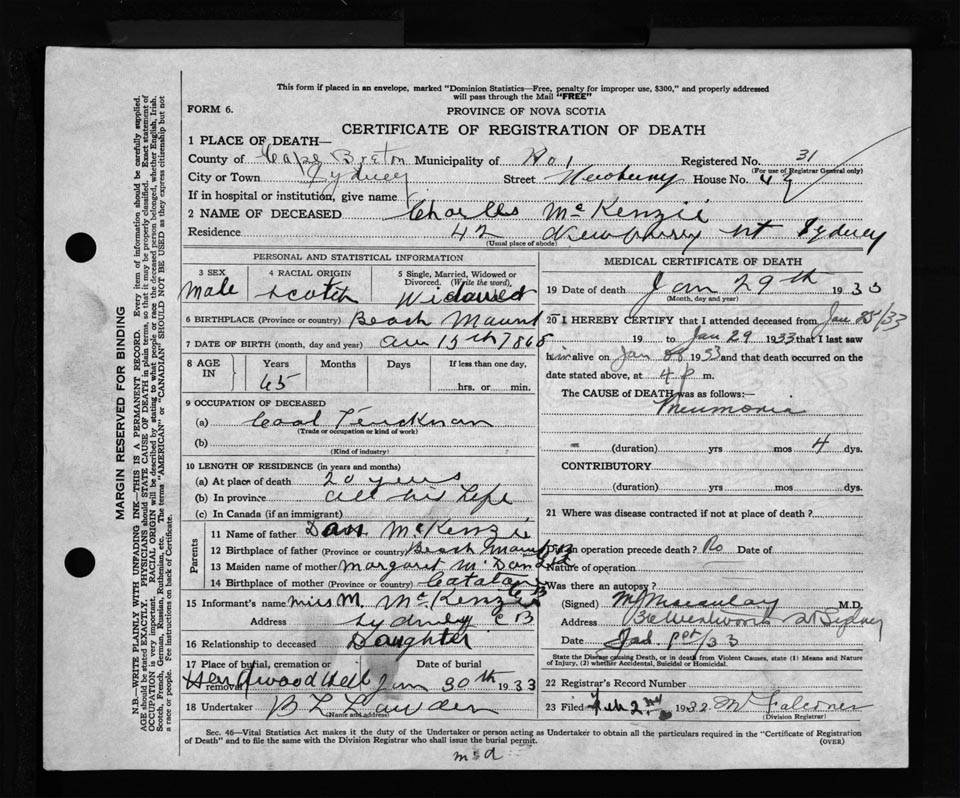 This form if placed in an envelope, marked "Dominion Statistics—Free, penalty for improper use, $300," and properly addressed
will pass through the Mail "FREE"
FORM 6.
PROVINCE OF NOVA SCOTIA
CERTIFICATE OF REGISTRATION OF DEATH
1 PLACE OF DEATH—
County of Cape Breton Municipality of No 1 Registered No. 31
(For use of Registrar General only)
City or Town Sydney Street Newberry House No. 42
If in hospital or institution, give name
2 NAME OF DECEASED Charles McKenzie
Residence 42 Newberry st Sydney
(Usual place of abode)
PERSONAL AND STATISTICAL INFORMATION
3 SEX 4 RACIAL ORIGIN 5 Single, Married, Widowed or
Divorced. (Write the word),
Male Scotch Widowed
6 BIRTHPLACE (Province or country) Beach Mount
7 DATE OF BIRTH (month, day and year) 15th 1865
8 AGE IN Years Months Days If less than one day,
65 hrs. or min.
9 OCCUPATION OF DECEASED
(a) Coal
(Trade or occupation or kind of work)
(b)
(Kind of industry)
10 LENGTH OF RESIDENCE (in years and months)
(a) At place of death 20 years
(b) In province all his Life
(c) In Canada (if an immigrant)
Parents
11 Name of father Dan McKenzie
12 Birthplace of father (Province or country) Beach Mount CB
13 Maiden name of mother Margaret McDonald
14 Birthplace of mother (Province or country) Catalone CB
15 Informant's name Miss M. McKenzie
Address Sydney CB
16 Relationship to deceased Daughter
17 Place of burial, cremation or removal Date of burial
Hardwood Hill Jan 30th 1933
18 Undertaker B L Lawder
(Name and address)
MEDICAL CERTIFICATE OF DEATH
19 Date of death Jan 29th 1933
(Month, day and year)
20 I HEREBY CERTIFY that I attended deceased from Jan 25/33
19 to Jan 29 1933 that I last saw
him alive on Jan 1933 and that death occurred on the
date stated above, at 4 p m.
The CAUSE OF DEATH was as follows:—
Pneumonia
(duration) yrs mos 4 dys.
CONTRIBUTORY
(duration) yrs mos dys.
21 Where was disease contracted if not at place of death?
Did an operation precede death? No Date of
Nature of operation
Was there an autopsy?
(Signed) M. D.
Address Wentworth Sydney
Date /33
State the Disease causing Death, or in death from Violent Causes, state (1) Means and Nature
of Injury, (2) whether Accidental, Suicidal or Homicidal.
22 Registrar's Record Number
23 Filed Feb 2nd 1933 Falconer
(Division Registrar)
Sec. 46—Vital Statistics Act makes it the duty of the Undertaker or Person acting as Undertaker to obtain all the particulars required in the "Certificate of Registration
of Death" and to file the same with the Division Registrar who shall issue the burial permit.
(OVER)
MARGIN RESERVED FOR BINDING
N.B.—WRITE PLAINLY WITH UNFADING INK—THIS IS A PERMANENT RECORD. Every item of information should be carefully supplied.
AGE should be stated EXACTLY. PHYSICIANS should STATE CAUSE OF DEATH in plain terms, so that it may be properly classified. Exact statement of
OCCUPATION is very important. RACIAL ORIGIN will be described by stating to what people or race the deceased person belonged, whether English, Irish,
Scotch, French, German, Russian, Ruthenian, etc. The terms "AMERICAN" or "CANADIAN" SHOULD NOT BE USED as they express citizenship but not
a race or people. Fee instructions on back of Certificate.